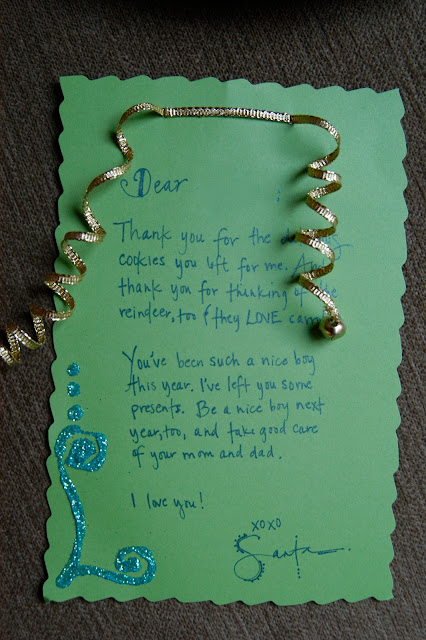 Dear
Thank you for the
cookies you left for me. And
thank you for thinking of the
reindeer, too & they LOVE
You've been such a nice boy
this year. I've left you some
presents. Be a nice boy next
year, too, and take good care
of your mom and dad.
I love you!
XOXO
Santa